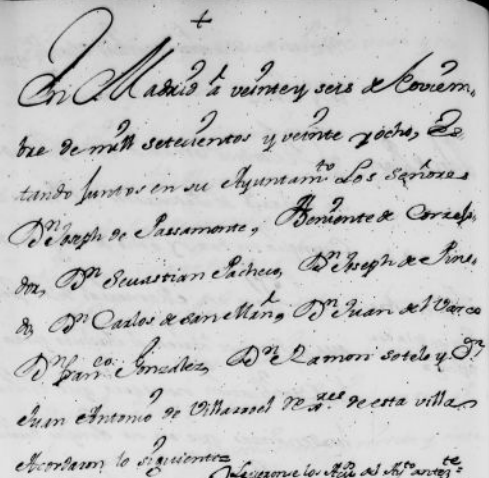 +
En Madrid a veinte y seis de Noviem-
bre de mill setecientos y veinte y ocho, Es-
tando Juntos en su Ayuntamto Los Señores
Dn Joseph de Passamonte, Theniente de Correxi-
dor, Dn Sevastian Pacheco, Dn Joseph de Pine-
do, Dn Carlos de san Millán, Dn Juan del Varco
Dn Franco González, Dn Ramon sotelo y Dn
Juan Antonio de Villarroel Rexres de esta villa
Acordaron lo siguiente=
Leyeronse los del antezte